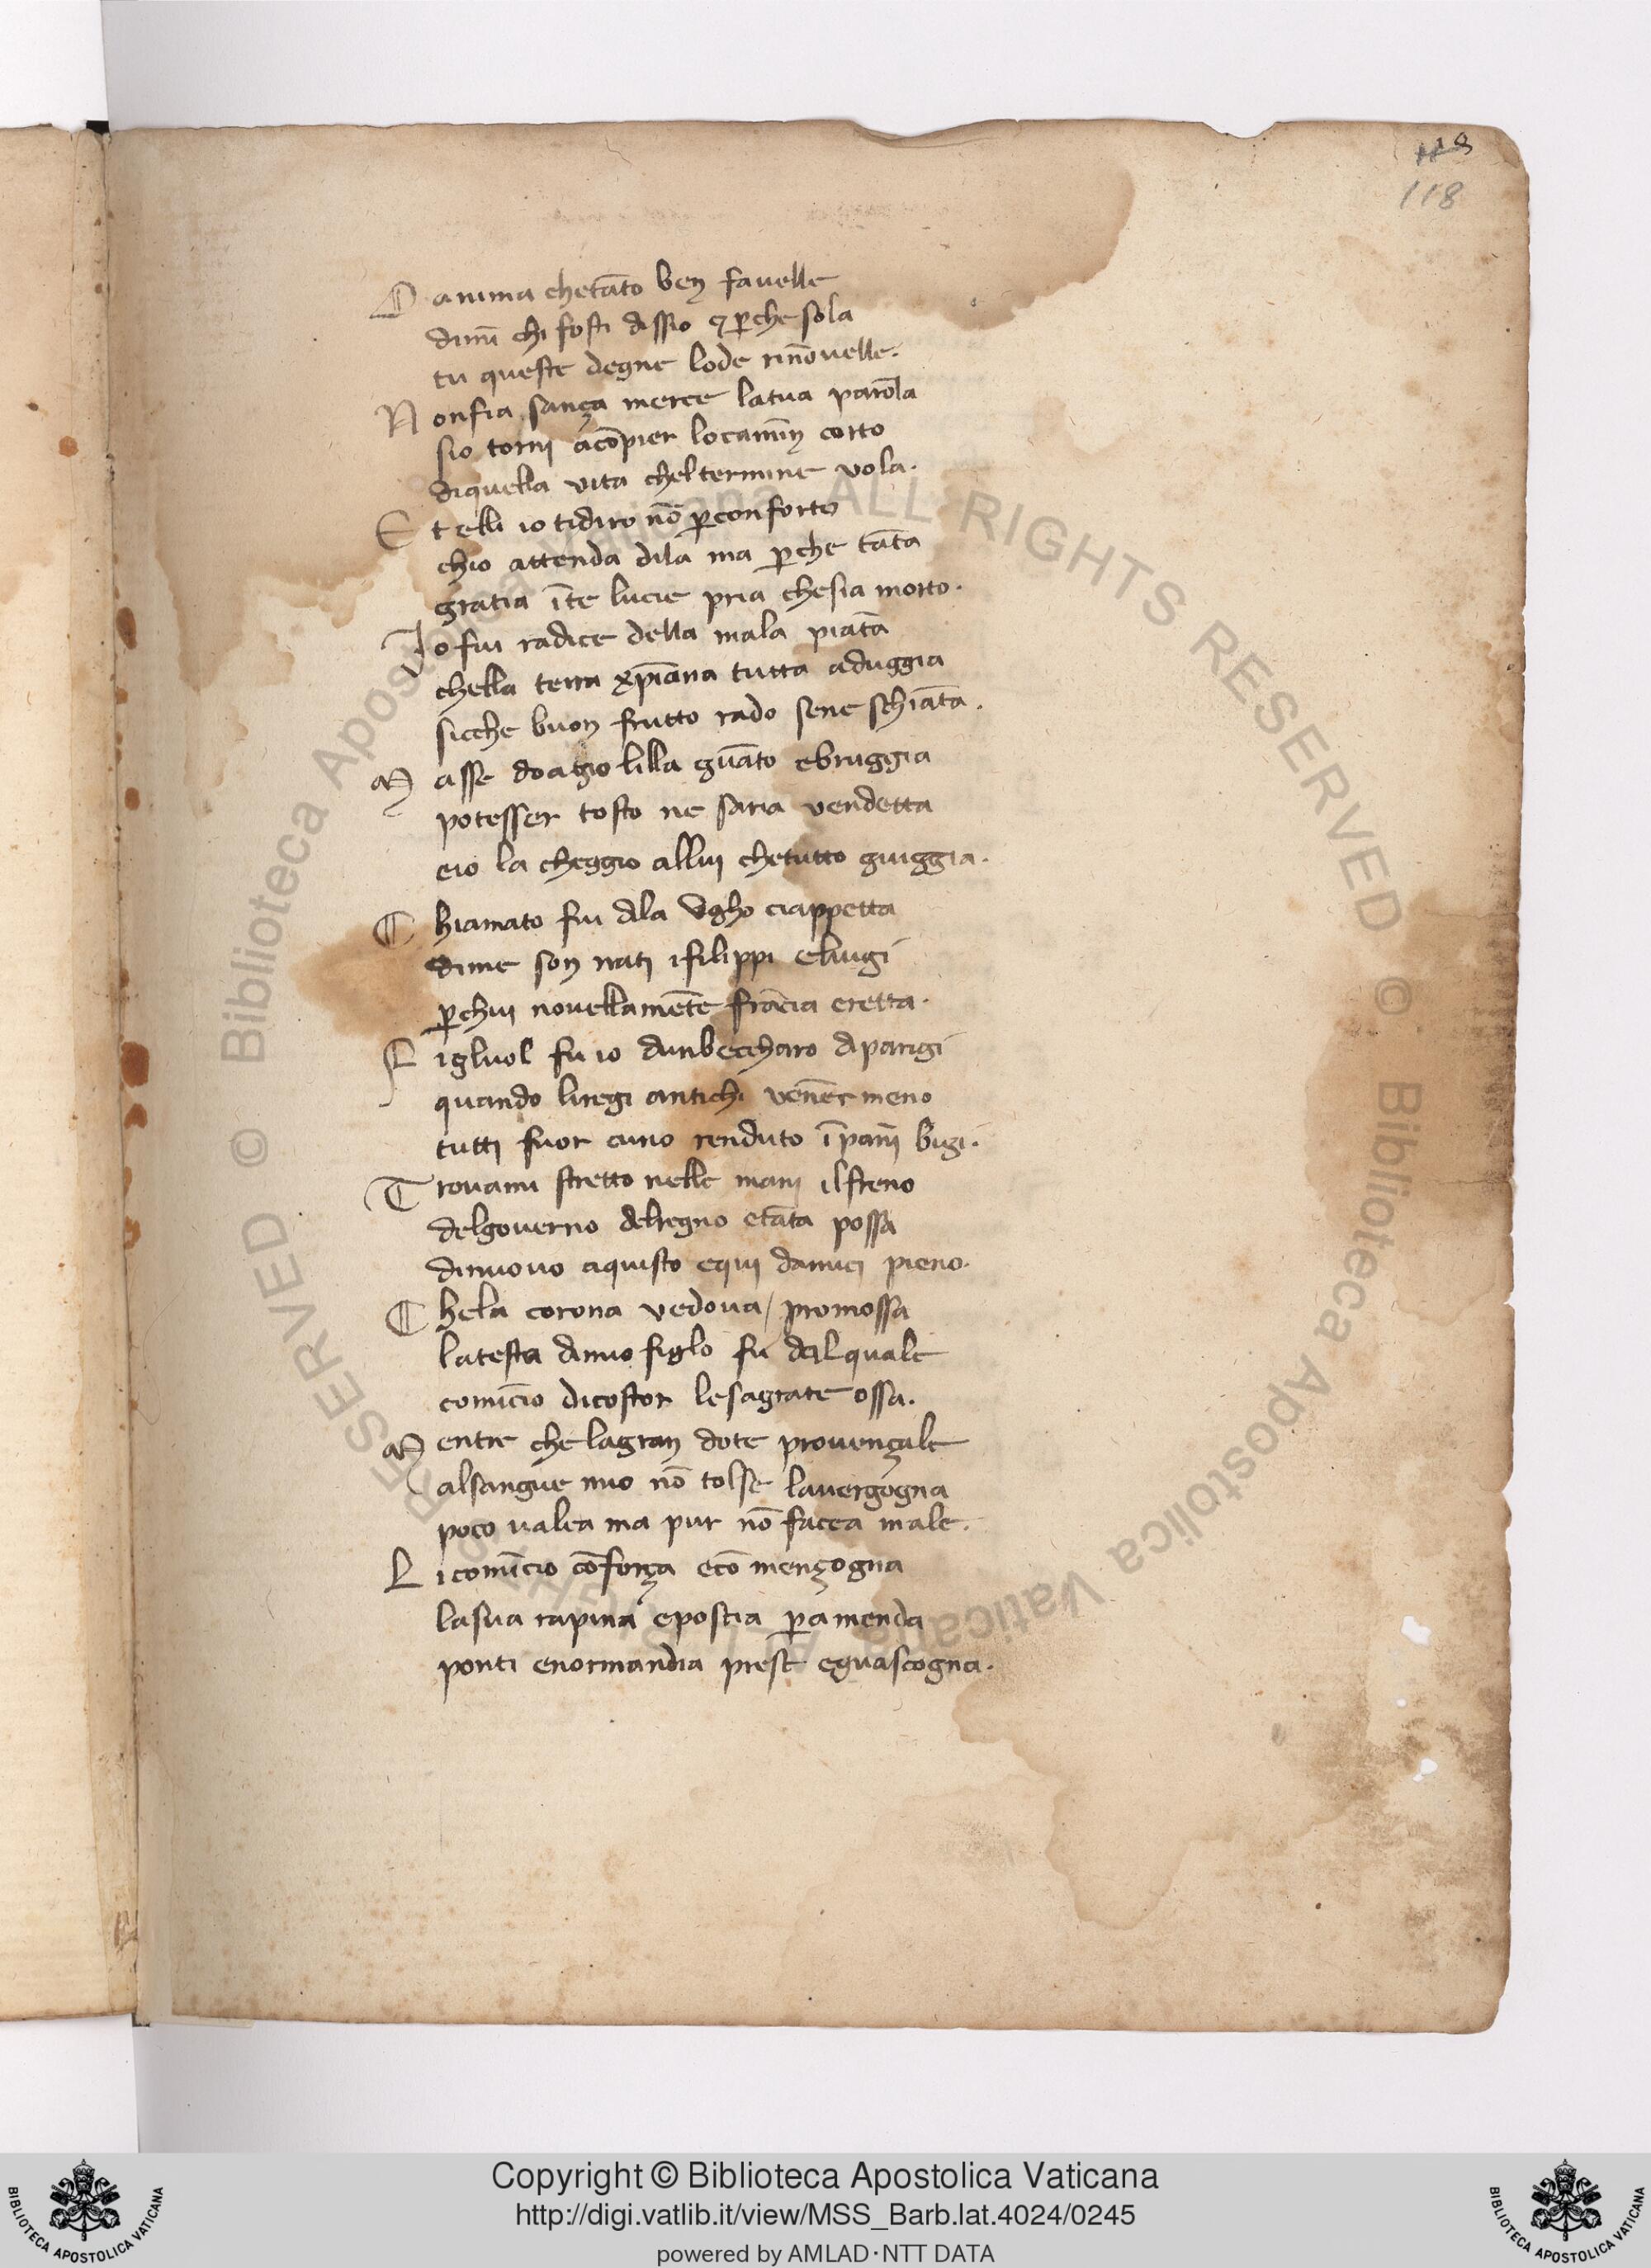 118
118
O anima chetāto ben favelle
dimī chi fosti dissio ⁊ ꝑche sola
tu queste degne lode rinōvelle.
N onfia sança merce latua parola
sio torni acōpier locamīn corto
diquella vita chel termine vola.
E t elli io tidiro nō ꝑ conforto
chio attenda dila ma ꝑche tāta
gratia īte lucie pria chesia morto.
I o fui radice della mala piāta
chella terra xp̄iana tutta aduggia
sicche buon frutto rado sene schiāta.
M a sse doagio lilla guāto ebruggia
potesser tosto ne saria vendetta
eio la cheggio allui chetutto giuggia.
C hiamato fui dila Ugho ciappetta
dime son nati ifilippi eluigi
ꝑchui novellamēte frācia eretta.
F igluol fu io dunbeccharo diparigi
quando liregi antichi vēner meno
tutti fuor cuno renduto īpanī bigi.
T rovami stretto nelle mani ilfreno
delgoverno delregno etāta possa
dinuovo aquisto equi damici pieno.
C hela corona vedova / promossa
latesta dimio figlo fu dal quale
comīcio dicostor lesagrate ossa.
M entre che lagran dote provençale
alsangue mio nō tolse lavergogna
poco valea ma pur nō facea male.
L i comīcio cōforça ecō mençogna
lasua rapina eposcia ꝑamenda
ponti enormandia prese eguascogna.
Biblioteca Apostolica Vaticana ALL RIGHTS RESERVED © Biblioteca Apostolica Vaticana ALL RIGHTS RESERVED ©
Copyright © Biblioteca Apostolica Vaticana
http://digi.vatlib.it/view/MSS_Barb.lat.4024/0245
powered by AMLAD·NTT DATA
BIBLIOTECA APOSTOLICA VATICANA
BIBLIOTECA APOSTOLICA VATICANA